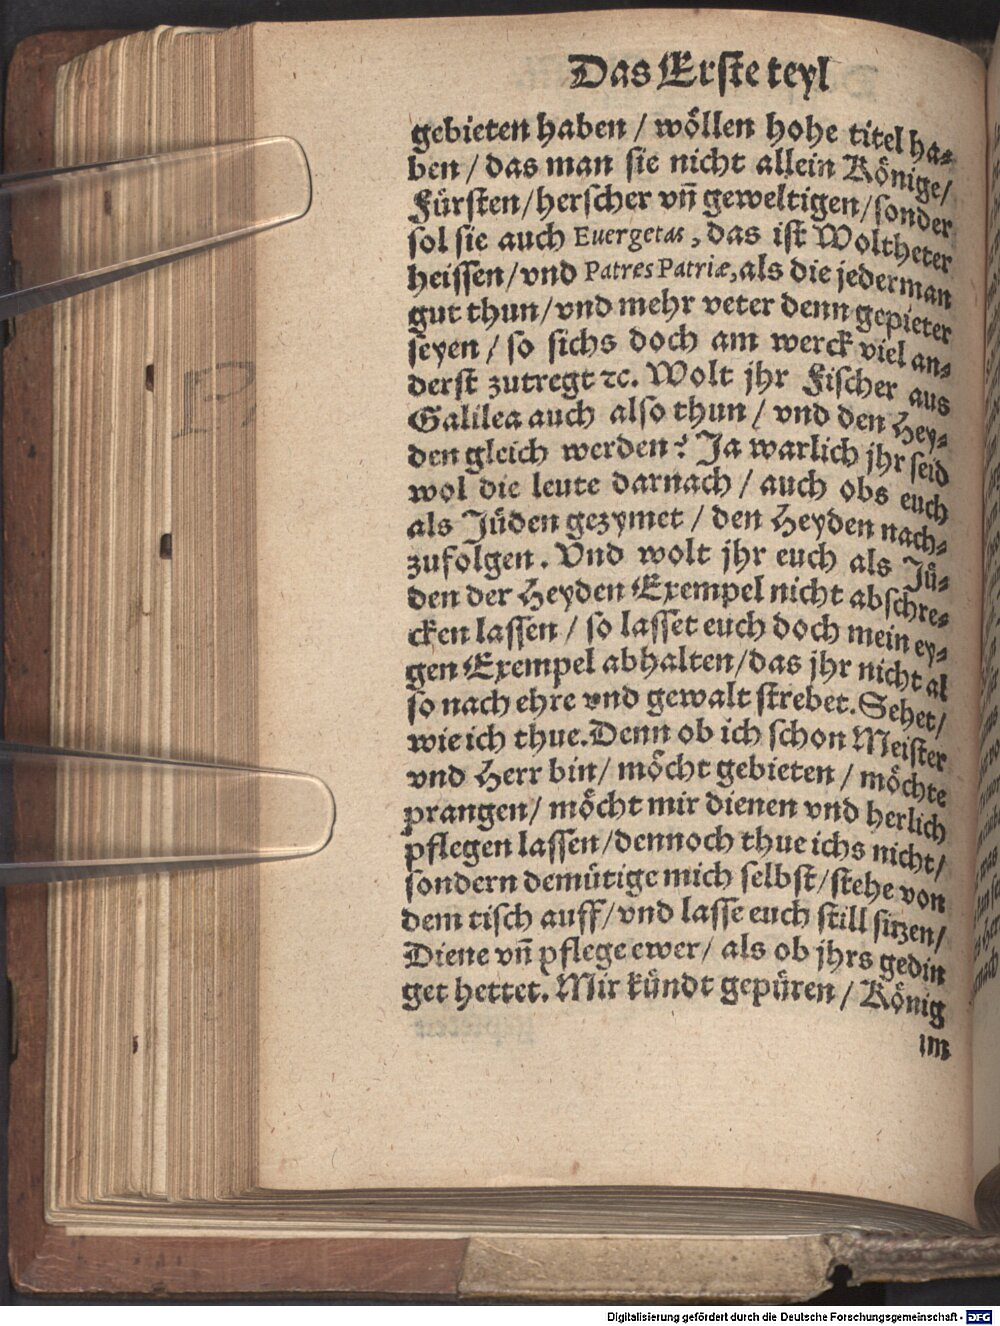 Das Erste teyl
gebieten haben / wöllen hohe titel ha-
ben / das man sie nicht allein Könige/
Fürsten/herscher vñ geweltigen/sonder
sol sie auch Euergetas, das ist Woltheter
heissen/vnd Patres Patriæ,als die jederman
gut thun/vnd mehr veter denn gepieter
seyen / so sichs doch am werck viel an-
derst zutregt ꝛc. Wolt jhr Fischer aus
Galilea auch also thun / vnd den Hey-
den gleich werden? Ja warlich jhr seid
wol die leute darnach / auch obs euch
als Jüden gezymet / den Heyden nach-
zufolgen. Vnd wolt jhr euch als Jü-
den der Heyden Exempel nicht abschre-
cken lassen / so lasset euch doch mein ey-
gen Exempel abhalten/das jhr nicht al
so nach ehre vnd gewalt strebet. Sehet/
wie ich thue. Denn ob ich schon Meister
vnd Herr bin/ möcht gebieten / möchte
prangen/ möcht mir dienen vnd herlich
pflegen lassen/dennoch thue ichs nicht/
sondern demütige mich selbst/stehe von
dem tisch auff/vnd lasse euch still sitzen/
Diene vñ pflege ewer/ als ob jhrs gedin
get hettet. Mir kündt gepüren / König
im
Digitalisierung gefördert durch die Deutsche Forschungsgemeinschaft - DFG